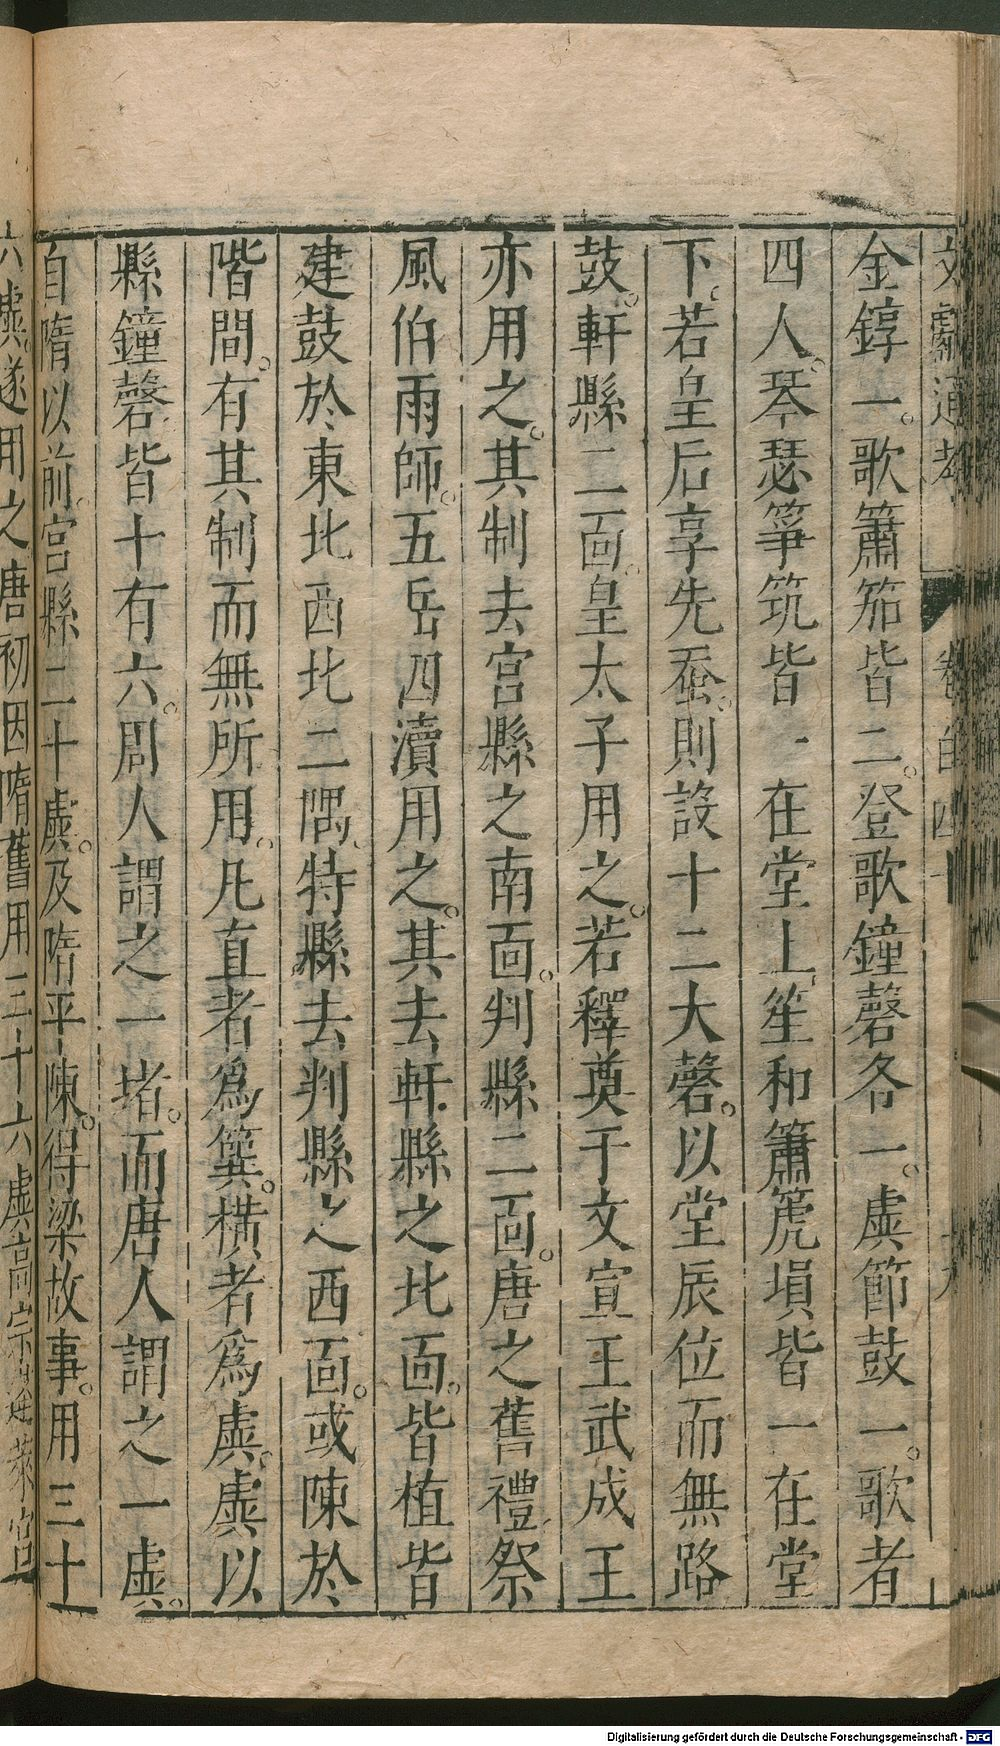 文獻通考 卷百四十 十九
金錞一。歌簫笳皆二。登歌鐘磬各一。虡節鼓一。歌者
四人。琴瑟箏筑皆一在堂上笙和簫篪塤皆一在堂
下。若皇后享先蚕。則設十二大磬。以堂辰位而無路
鼓。軒縣二面。皇太子用之。若釋奠于文宣王武成王
亦用之。其制去宮縣之南面。判縣二面。唐之舊禮祭
風伯雨師。五岳四瀆用之。其去軒縣之北面。皆植皆
建鼓於東北西北二隅。特縣去判縣之西面。或陳於
階間。有其制而無所用。凡直者爲簨。橫者爲虡。虡以
縣鐘磬皆十有六。周人謂之一堵。而唐人謂之一虡。
自隋以前。宮縣二十虡。及隋平陳。得梁故事。用三十
六虡。遂用之唐初因隋舊用三十六虡高宗蓬萊宮
Digitalisierung gefördert durch die Deutsche Forschungsgemeinschaft - DFG